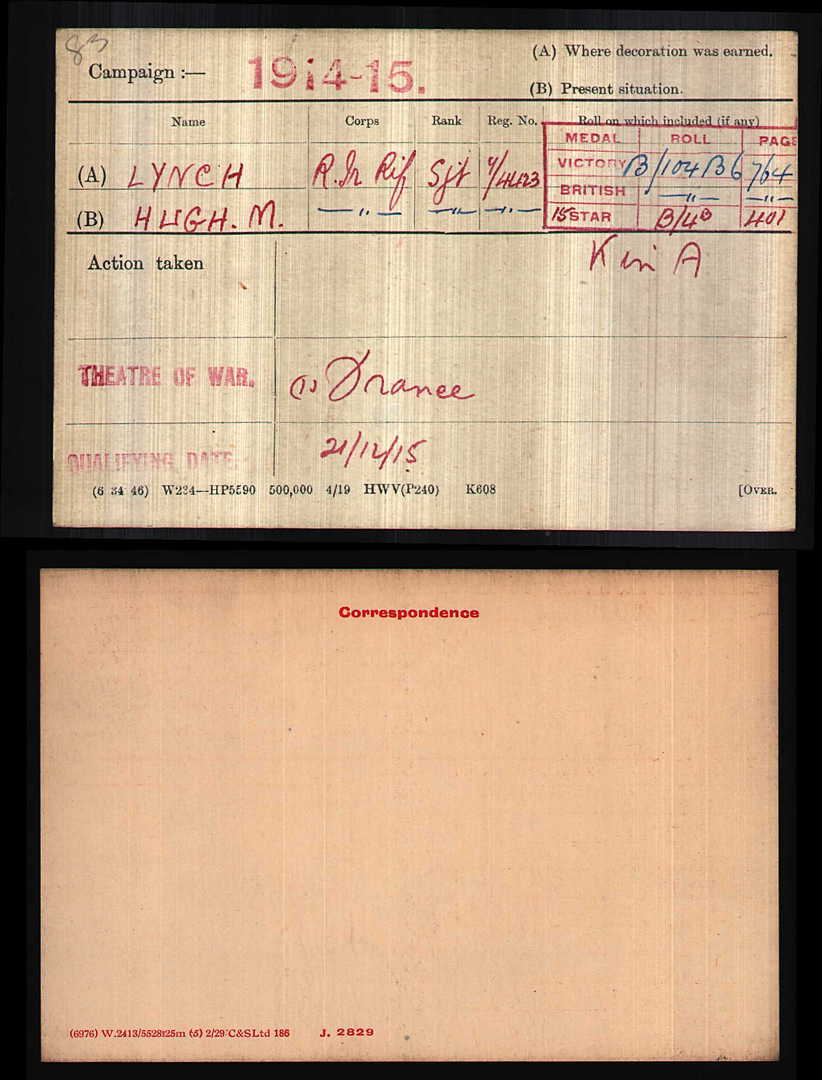 83
Campaign :— 1914-15.
(A) Where decoration was earned.
(B) Present situation.
Name Corps Rank Reg. No. Roll on which included (if any)
MEDAL ROLL PAGE
(A) LYNCH R. Ir Rif Sjt 7/4423 VICTORY B/104B6 764
BRITISH —"— —"—
(B) HUGH. M. —"— —"— —"— 15 STAR B/4B 401
Action taken K in A
THEATRE OF WAR. (1) France
QUALIFYING DATE 21/12/15
(6 34 46) W234—HP5590 500,000 4/19 HWV(P240) K608 [OVER.
Correspondence
(6976) W.2413/5528 125m (5) 2/29 C&S Ltd 186 J. 2829